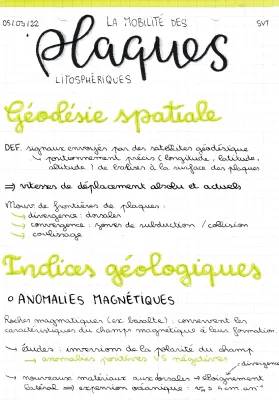 05/09/22 LA MOBILITÉ DES SVT
plaques
LITOSPHÉRIQUES
Géodésie spatiale
DEF. signaux envoyés par des satellites géodésique
↳ positionnement précis (longitude, latitude,
altitude) de balises à la surface des plaques
⇒ vitesses de déplacement absolu et actuels
Mouv. de frontières de plaques :
↳ divergence : dorsales
↳ convergence : zones de subduction / collision
↳ coulissage
Indices géologiques
○ ANOMALIES MAGNÉTIQUES
Roches magmatiques (ex basalte) : conservent les
caractéristiques du champs magnétique à leur formation.
↳ études : inversions de la polarité du champ
↳ anomalies positives VS négatives
divergence
↳ nouveaux matériaux aux dorsales → éloignement
latéral ⇒ expansion océanique :